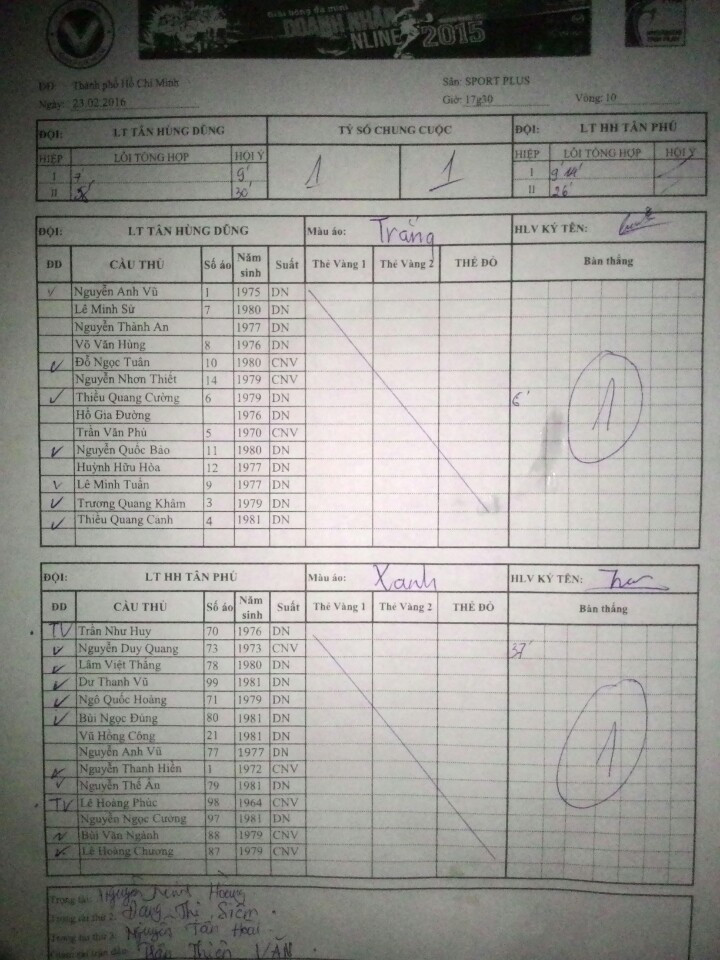 Giải bóng đá mini
DOANH NHÂN
NLINE 2015
ĐĐ: Thành phố Hồ Chí Minh Sân: SPORT PLUS
Ngày: 23.02.2016 Giờ: 17g30 Vòng: 10
ĐỘI: LT TÂN HÙNG DŨNG TỶ SỐ CHUNG CUỘC ĐỘI: LT HH TÂN PHÚ
HIỆP LỖI TỔNG HỢP HỘI Ý 1 1 HIỆP LỖI TỔNG HỢP HỘI Ý
I 7' 9' I 9' 14'
II 30' II 26'
ĐỘI: LT TÂN HÙNG DŨNG Màu áo: Trắng HLV KÝ TÊN:
ĐD CẦU THỦ Số áo Năm sinh Suất Thẻ Vàng 1 Thẻ Vàng 2 THẺ ĐỎ Bàn thắng
Nguyễn Anh Vũ 1 1975 DN
Lê Minh Sử 7 1980 DN
Nguyễn Thành An 1977 DN
Võ Văn Hùng 8 1976 DN
Đỗ Ngọc Tuân 10 1980 CNV
Nguyễn Nhơn Thiết 14 1979 CNV
Thiều Quang Cường 6 1979 DN 6' 1
Hồ Gia Đường 1976 DN
Trần Văn Phú 5 1970 CNV
Nguyễn Quốc Bảo 11 1980 DN
Huỳnh Hữu Hòa 12 1977 DN
Lê Minh Tuấn 9 1977 DN
Trương Quang Khâm 3 1979 DN
Thiều Quang Cảnh 4 1981 DN
ĐỘI: LT HH TÂN PHÚ Màu áo: Xanh HLV KÝ TÊN:
ĐD CẦU THỦ Số áo Năm sinh Suất Thẻ Vàng 1 Thẻ Vàng 2 THẺ ĐỎ Bàn thắng
TV Trần Như Huy 70 1976 DN
Nguyễn Duy Quang 73 1973 CNV 37'
Lâm Việt Thắng 78 1980 DN
Dư Thanh Vũ 99 1981 DN
Ngô Quốc Hoàng 71 1979 DN
Bùi Ngọc Đúng 80 1981 DN
Vũ Hồng Công 21 1981 DN 1
Nguyễn Anh Vũ 77 1977 DN
Nguyễn Thanh Hiền 1 1972 CNV
Nguyễn Thế Ân 79 1981 DN
TV Lê Hoàng Phúc 98 1964 CNV
Nguyễn Ngọc Cường 97 1981 DN
Bùi Văn Ngành 88 1979 CNV
Lê Hoàng Chương 87 1979 CNV
Trọng tài: Nguyễn Minh Hoàng
Trọng tài thứ 2: Đặng Thị Siêm
Trọng tài thứ 3: Nguyễn Tấn Hoài
Trần Thiện VĂN